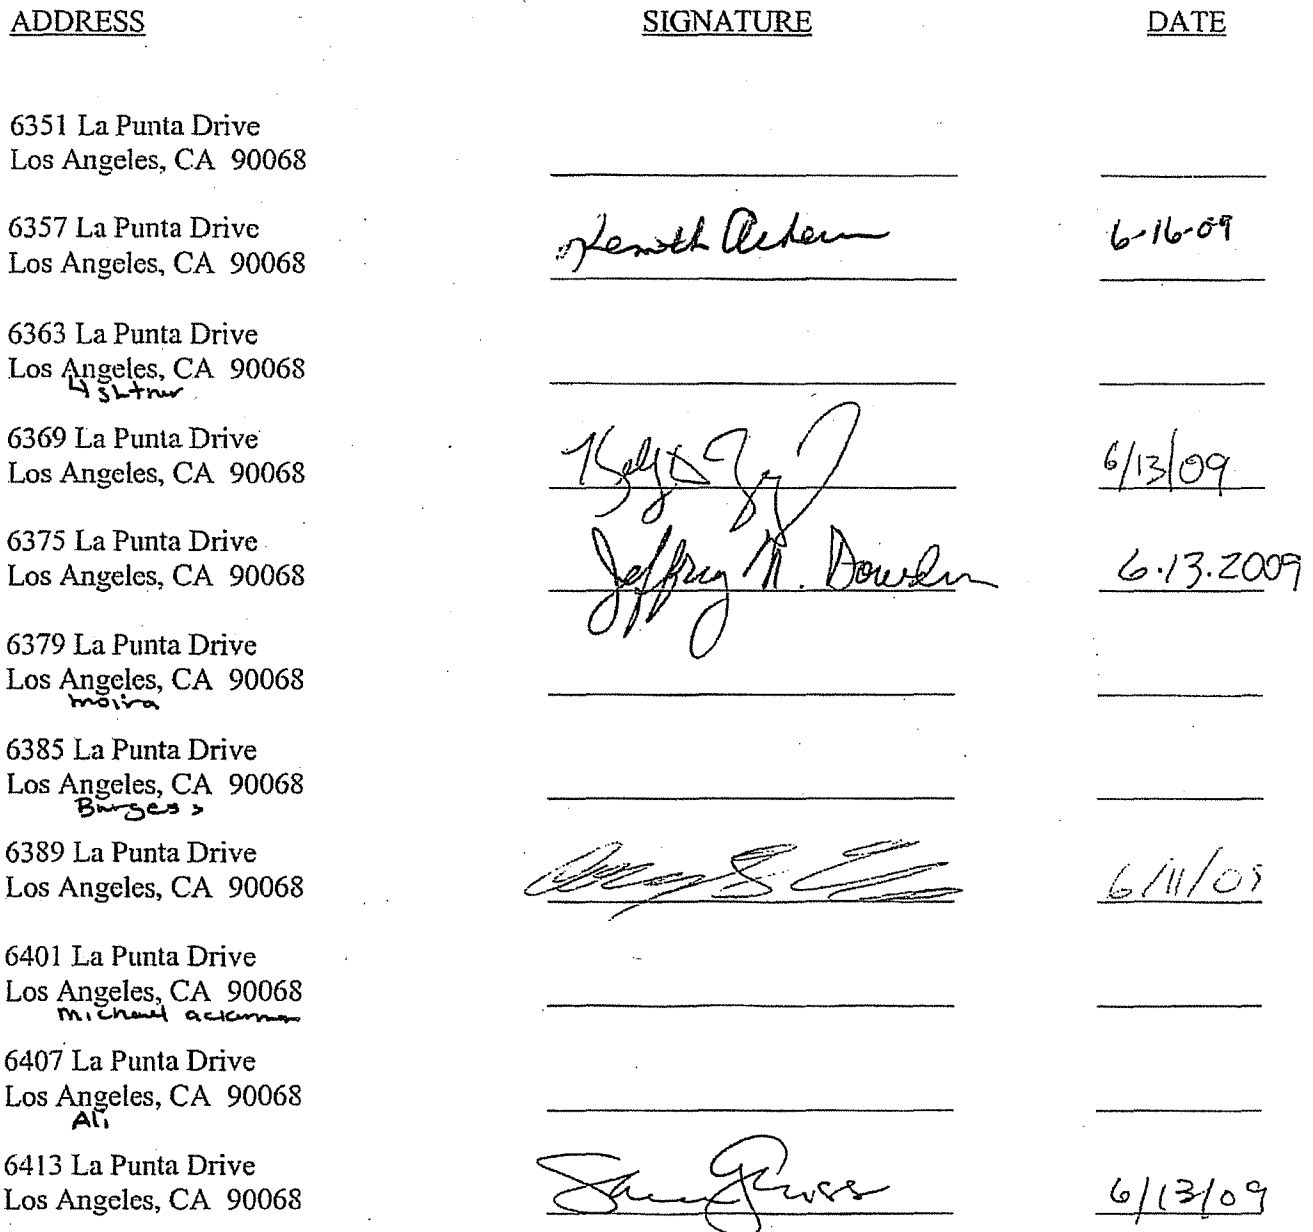 ADDRESS SIGNATURE DATE
6351 La Punta Drive
Los Angeles, CA 90068
6357 La Punta Drive
Los Angeles, CA 90068
Kenneth 6-16-09
6363 La Punta Drive
Los Angeles, CA 90068
6369 La Punta Drive
Los Angeles, CA 90068
6/13/09
6375 La Punta Drive
Los Angeles, CA 90068
Jeffrey N. Bowden 6.13.2009
6379 La Punta Drive
Los Angeles, CA 90068
moira
6385 La Punta Drive
Los Angeles, CA 90068
Burgess
6389 La Punta Drive
Los Angeles, CA 90068
6/11/09
6401 La Punta Drive
Los Angeles, CA 90068
michael ackerman
6407 La Punta Drive
Los Angeles, CA 90068
Ali
6413 La Punta Drive
Los Angeles, CA 90068
6/13/09